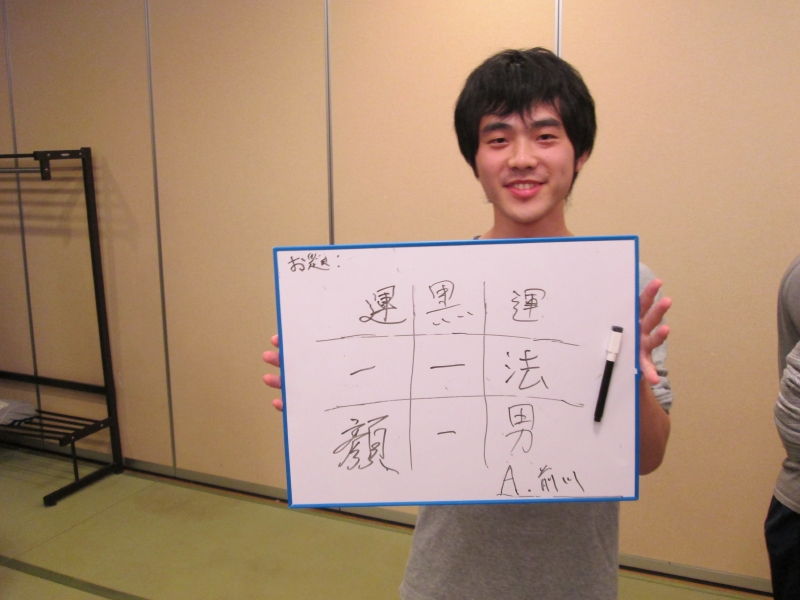 お題:
運 黒 運
一 一 法
顔 一 男
A. 前川